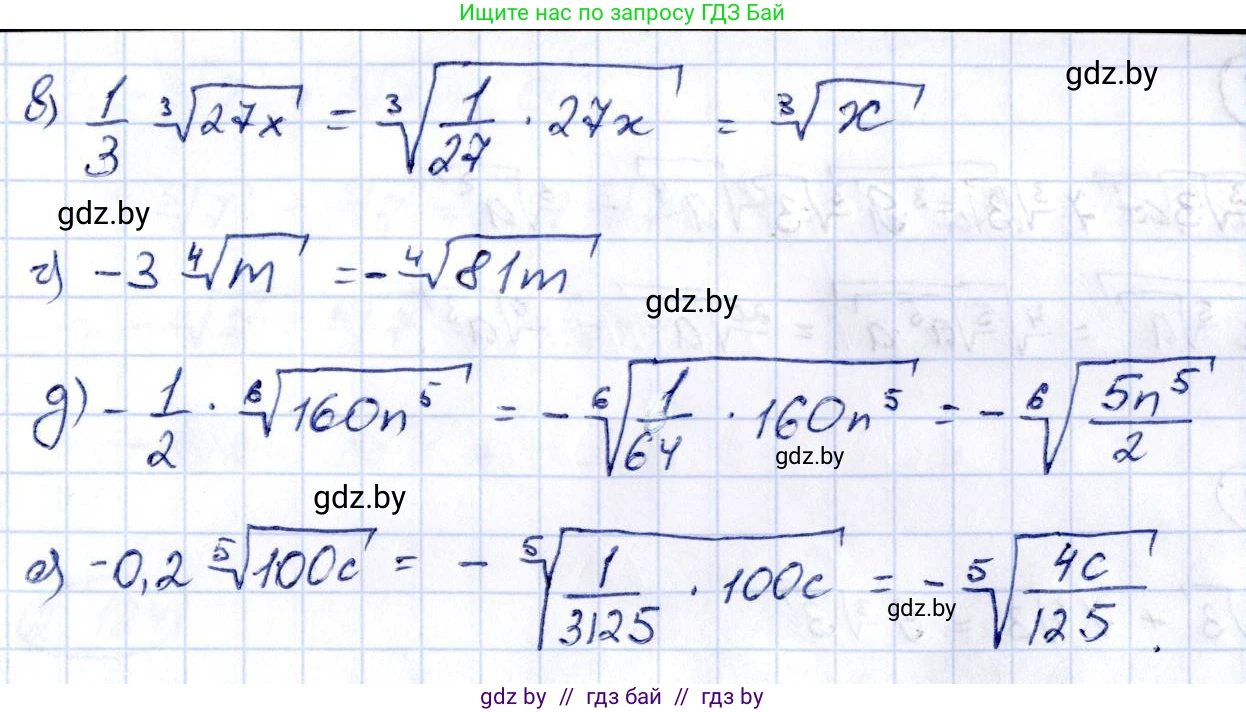 Ищите нас по запросу ГДЗ Бай
gdz.by
в) 1/3 ∛27x = ∛(1/27 · 27x) = ∛x
gdz.by
г) -3 ∜m = -∜81m
gdz.by
д) -1/2 · ⁶√160n⁵ = -⁶√(1/64 · 160n⁵) = -⁶√(5n⁵/2)
gdz.by
gdz.by
е) -0,2 ⁵√100c = -⁵√(1/3125 · 100c) = -⁵√(4c/125).
gdz.by
gdz by // гдз бай // гдз by